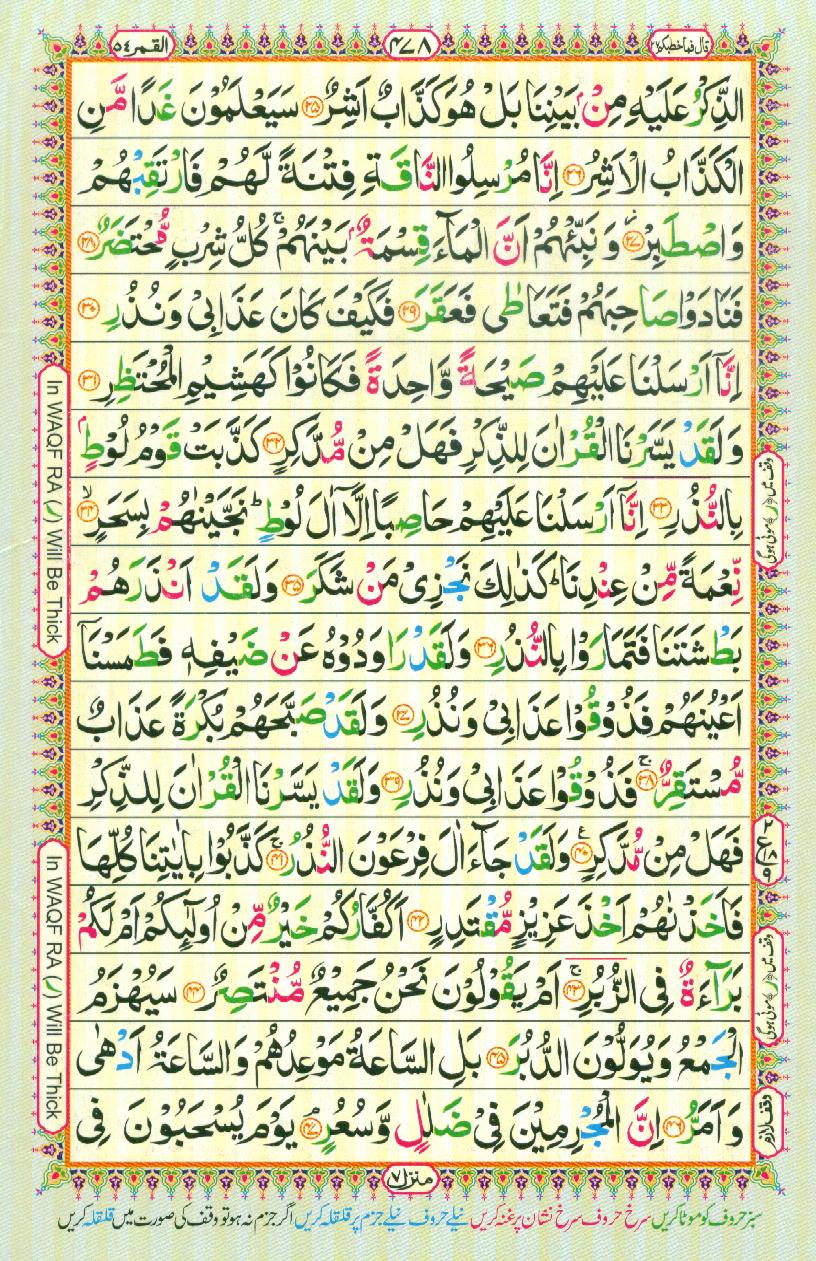 قال فما خطبكم ٢٧
٤٧٨
القمر ٥٤
الذِّكْرُ عَلَيْهِ مِنْۢ بَيْنِنَا بَلْ هُوَ كَذَّابٌ اَشِرٌ ﴿۲۵﴾ سَيَعْلَمُوْنَ غَدًا مَّنِ
الْكَذَّابُ الْاَشِرُ ﴿۲۶﴾ اِنَّا مُرْسِلُوا النَّاقَةِ فِتْنَةً لَّهُمْ فَارْتَقِبْهُمْ
وَاصْطَبِرْ ﴿۲۷﴾ وَ نَبِّئْهُمْ اَنَّ الْمَآءَ قِسْمَةٌۢ بَيْنَهُمْ ۚ كُلُّ شِرْبٍ مُّحْتَضَرٌ ﴿۲۸﴾
فَنَادَوْا صَاحِبَهُمْ فَتَعَاطٰى فَعَقَرَ ﴿۲۹﴾ فَكَيْفَ كَانَ عَذَابِىْ وَ نُذُرِ ﴿۳۰﴾
اِنَّاۤ اَرْسَلْنَا عَلَيْهِمْ صَيْحَةً وَّاحِدَةً فَكَانُوْا كَهَشِيْمِ الْمُحْتَظِرِ ﴿۳۱﴾
وَلَقَدْ يَسَّرْنَا الْقُرْاٰنَ لِلذِّكْرِ فَهَلْ مِنْ مُّدَّكِرٍ ﴿۳۲﴾ كَذَّبَتْ قَوْمُ لُوْطٍۭ
بِالنُّذُرِ ﴿۳۳﴾ اِنَّاۤ اَرْسَلْنَا عَلَيْهِمْ حَاصِبًا اِلَّاۤ اٰلَ لُوْطٍ ؕ نَجَّيْنٰهُمْ بِسَحَرٍ ۙ﴿۳۴﴾
نِّعْمَةً مِّنْ عِنْدِنَا ؕ كَذٰلِكَ نَجْزِىْ مَنْ شَكَرَ ﴿۳۵﴾ وَلَقَدْ اَنْذَرَهُمْ
بَطْشَتَنَا فَتَمَارَوْا بِالنُّذُرِ ﴿۳۶﴾ وَلَقَدْ رَاوَدُوْهُ عَنْ ضَيْفِهٖ فَطَمَسْنَاۤ
اَعْيُنَهُمْ فَذُوْقُوْا عَذَابِىْ وَ نُذُرِ ﴿۳۷﴾ وَلَقَدْ صَبَّحَهُمْ بُكْرَةً عَذَابٌ
مُّسْتَقِرٌّ ۚ﴿۳۸﴾ فَذُوْقُوْا عَذَابِىْ وَ نُذُرِ ﴿۳۹﴾ وَلَقَدْ يَسَّرْنَا الْقُرْاٰنَ لِلذِّكْرِ
فَهَلْ مِنْ مُّدَّكِرٍ ﴿۴۰﴾ وَلَقَدْ جَآءَ اٰلَ فِرْعَوْنَ النُّذُرُ ۚ﴿۴۱﴾ كَذَّبُوْا بِاٰيٰتِنَا كُلِّهَا
فَاَخَذْنٰهُمْ اَخْذَ عَزِيْزٍ مُّقْتَدِرٍ ﴿۴۲﴾ اَكُفَّارُكُمْ خَيْرٌ مِّنْ اُولٰٓئِكُمْ اَمْ لَكُمْ
بَرَآءَةٌ فِى الزُّبُرِ ۚ﴿۴۳﴾ اَمْ يَقُوْلُوْنَ نَحْنُ جَمِيْعٌ مُّنْتَصِرٌ ﴿۴۴﴾ سَيُهْزَمُ
الْجَمْعُ وَيُوَلُّوْنَ الدُّبُرَ ﴿۴۵﴾ بَلِ السَّاعَةُ مَوْعِدُهُمْ وَالسَّاعَةُ اَدْهٰى
وَاَمَرُّ ﴿۴۶﴾ اِنَّ الْمُجْرِمِيْنَ فِىْ ضَلٰلٍ وَّسُعُرٍ ۘ﴿۴۷﴾ يَوْمَ يُسْحَبُوْنَ فِى
وقف میں (ر) موٹی ہوگی
ع
وقف میں (ر) موٹی ہوگی
وقف لازم
In WAQF RA (ر) Will Be Thick
In WAQF RA (ر) Will Be Thick
منزل ٧
سبز حروف کو موٹا کریں سرخ حروف سرخ نشان پر غنہ کریں نیلے حروف نیلے جزم پر قلقلہ کریں اگر جزم نہ ہو تو وقف کی صورت میں قلقلہ کریں